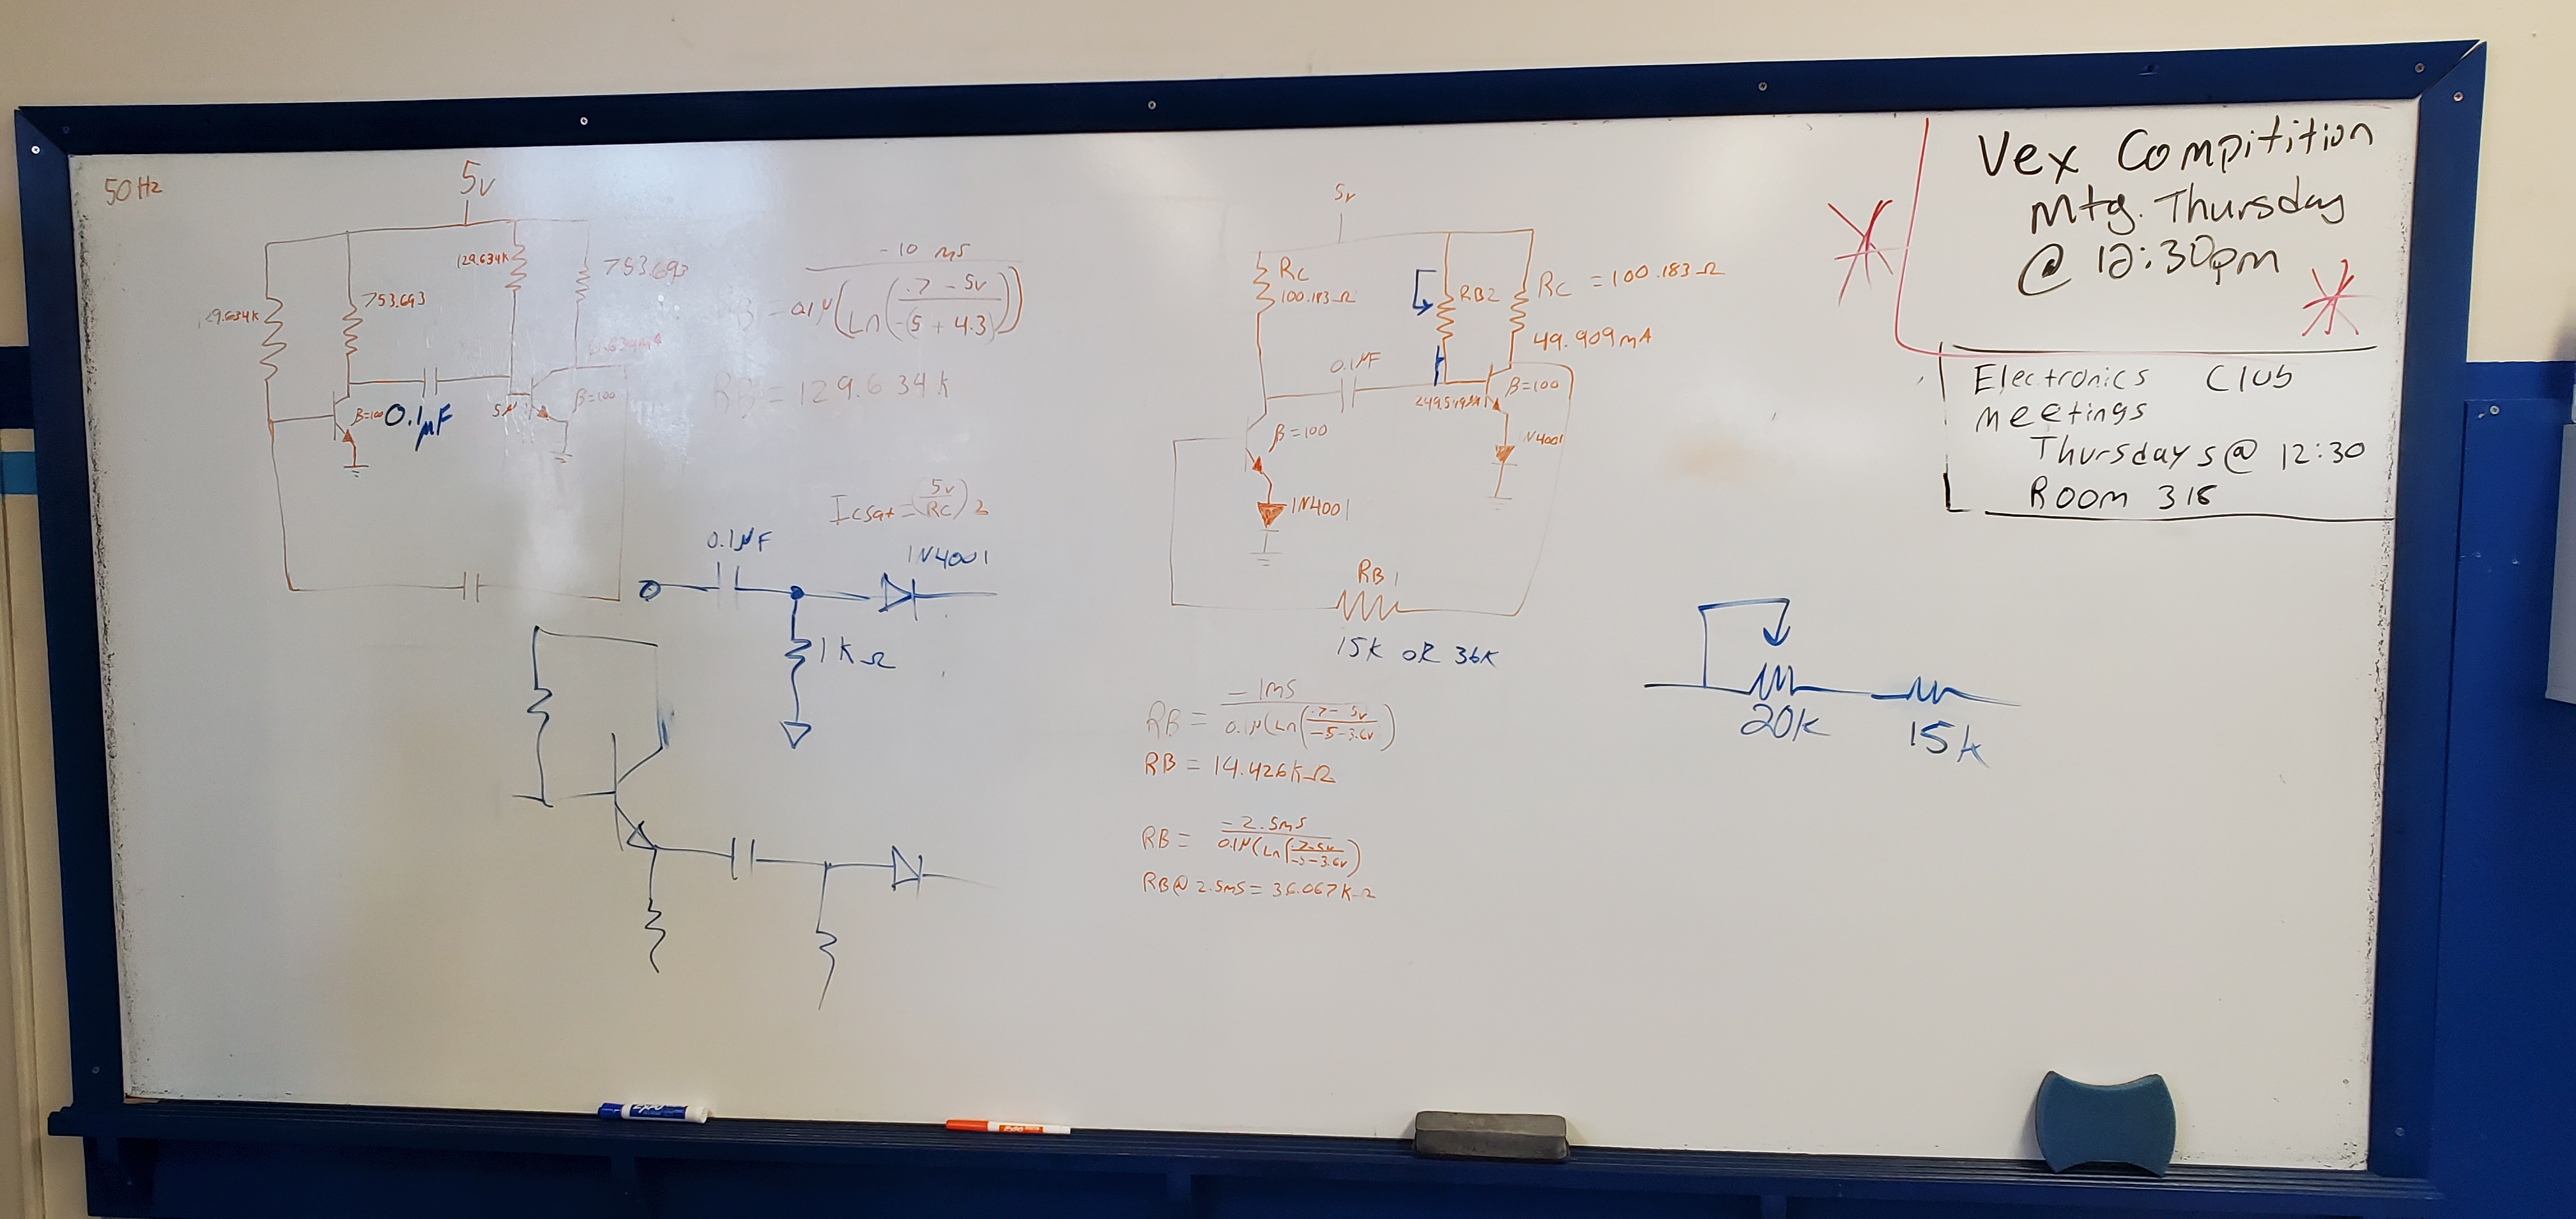 50Hz
5v
129.634K
753.693
29.634K
753.693
β=100
0.1µF
5µ
β=100
-10 ms
= 0.1µ(Ln(.7 - 5v
-(5 + 4.3)))
RB = 129.634k
Icsat = (5v
RC) 2
0.1µF
1N4001
1KΩ
5v
RC
100.183Ω
RB2
RC = 100.183Ω
49.909mA
0.1µF
β=100
β=100
1N4001
1N4001
RB1
15k OR 36k
-1ms
RB = 0.1µ(Ln(.7 - 5v
-5-3.6v)
RB = 14.426kΩ
-2.5ms
RB = 0.1µ(Ln(.7-5v
-5-3.6v)
RB@ 2.5ms = 36.067KΩ
Vex Compitition
Mtg. Thursday
@ 12:30pm
Electronics Club
Meetings
Thursdays @ 12:30
Room 318
20k
15k
EXPO